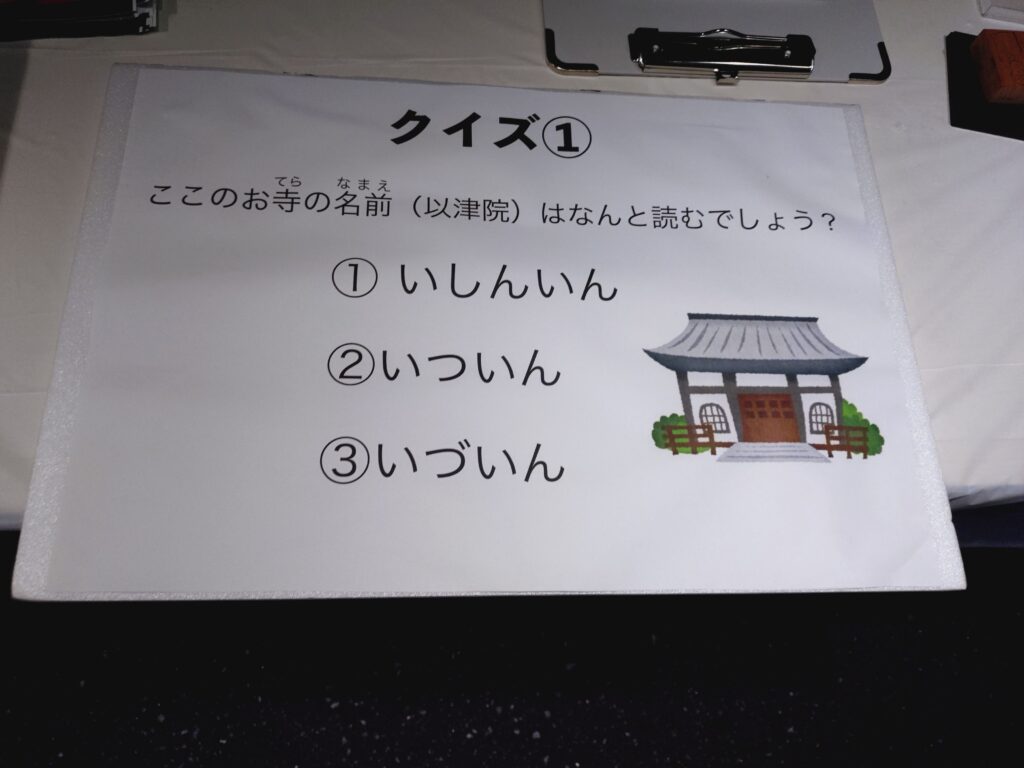 クイズ①
ここのお寺の名前（以津院）はなんと読むでしょう？
てら なまえ
① いしんいん
②いついん
③いづいん